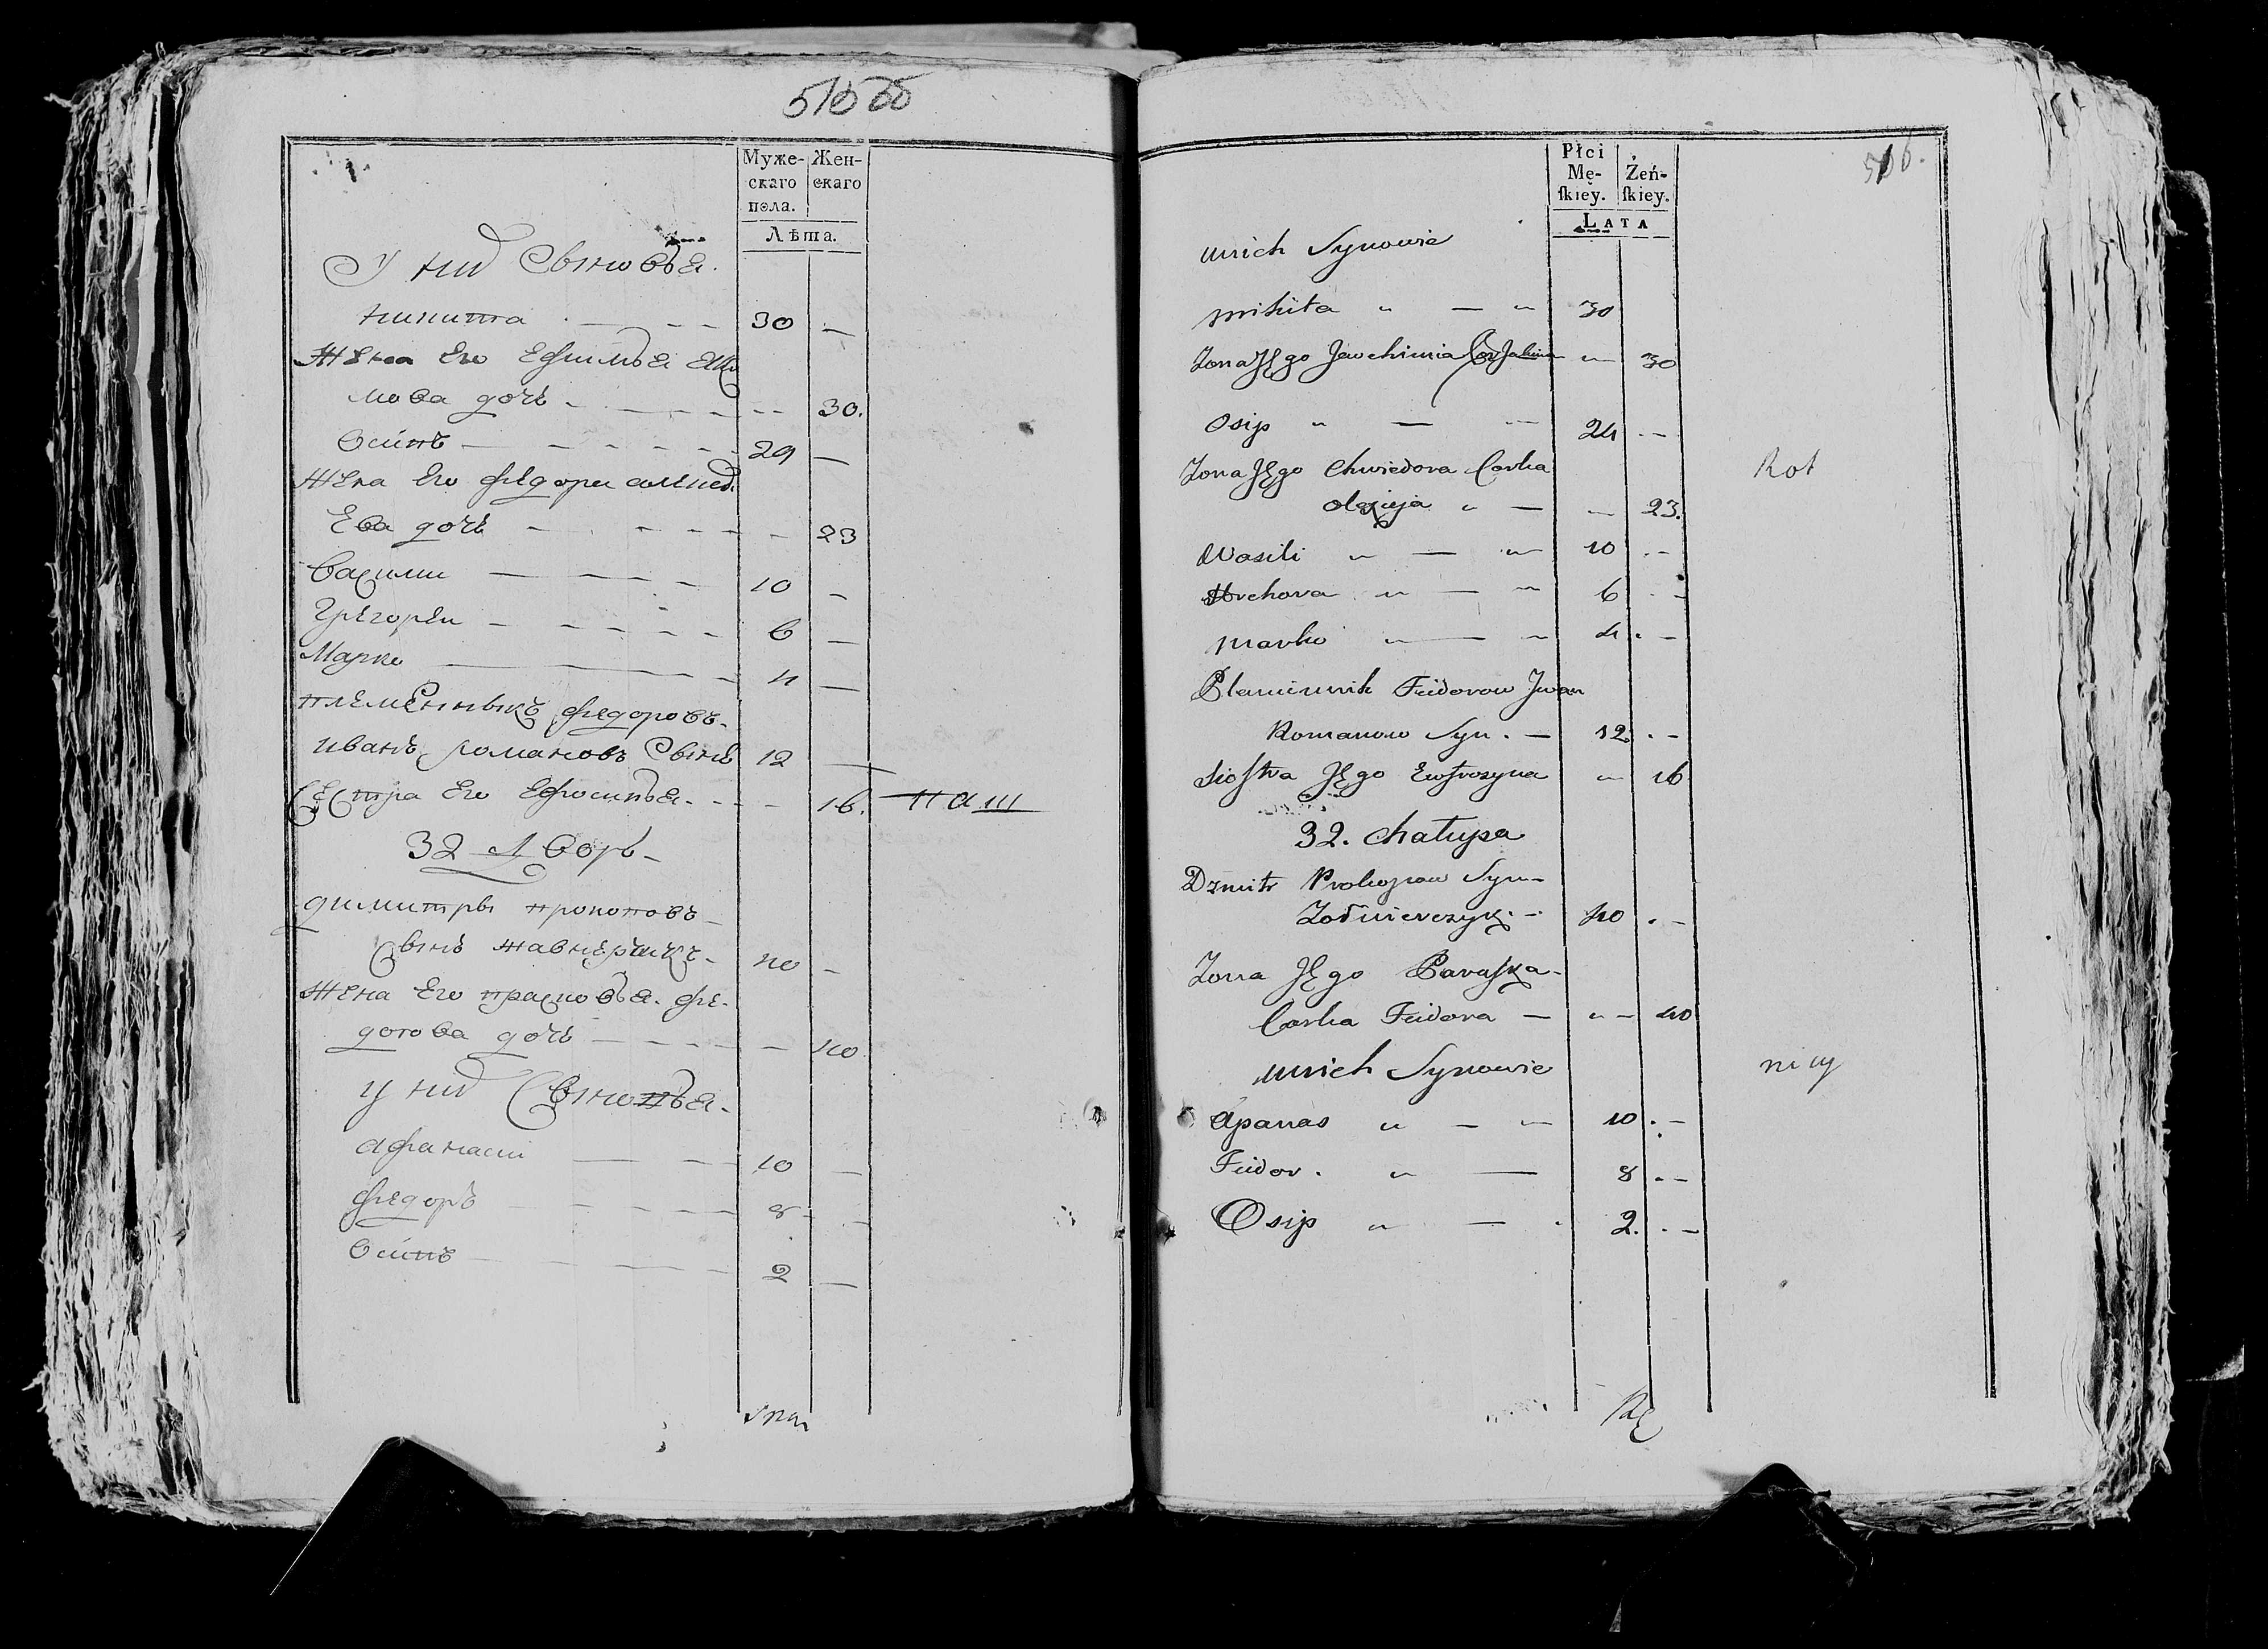 Муже- Жен-
скаго скаго
пола.
Лѣта.
У них Сыновья.
никита 30
Жена Его Ефимья Яки
мова дочь 30.
Осипъ 29
Жена Его федора алексѣ
Ева дочь 23
Василии 10
Григореи 6
Марко 4
племенныкъ федоровъ
иванъ романовъ Сынъ 12
Сестра Его Ефросинья 16.
32 Дворъ
димитры прокоповъ
Сынъ жавнерчикъ 40
Жена Его прасковья фе-
дотова дочь 40
у них Сыновья
афанасии 10
федоръ 8
Осипъ 2
516.
Płci
Mę- Żeń-
ſkiey. ſkiey.
LATA
unich Synowie
mikita 30
Zona Jego Jawchimia Cor Jakima 30
Osip 24
Zona Jego Chwiedora Corka
olexieja 23.
Wasili 10
Hrehora 6
marko 4
Plemiennik Fiedorow Jwan
Romanow Syn 12
Sioſtra Jego Ewfrozyna 16
32. Chałupa
Dzmitr Prokopow Syn
Żołnierczyk 40
Zona Jego Paraſka
Corka Fiedora 40
unich Synowie
Apanas 10
Fiedor. 8
Osip 2.